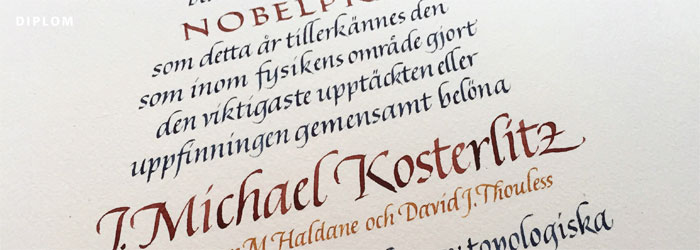 DIPLOM
NOBELP
som detta år tillerkännes den
som inom fysikens område gjort
den viktigaste upptäckten eller
uppfinningen gemensamt belöna
J. Michael Kosterlitz
M Haldane och David J. Thouless
topologiska